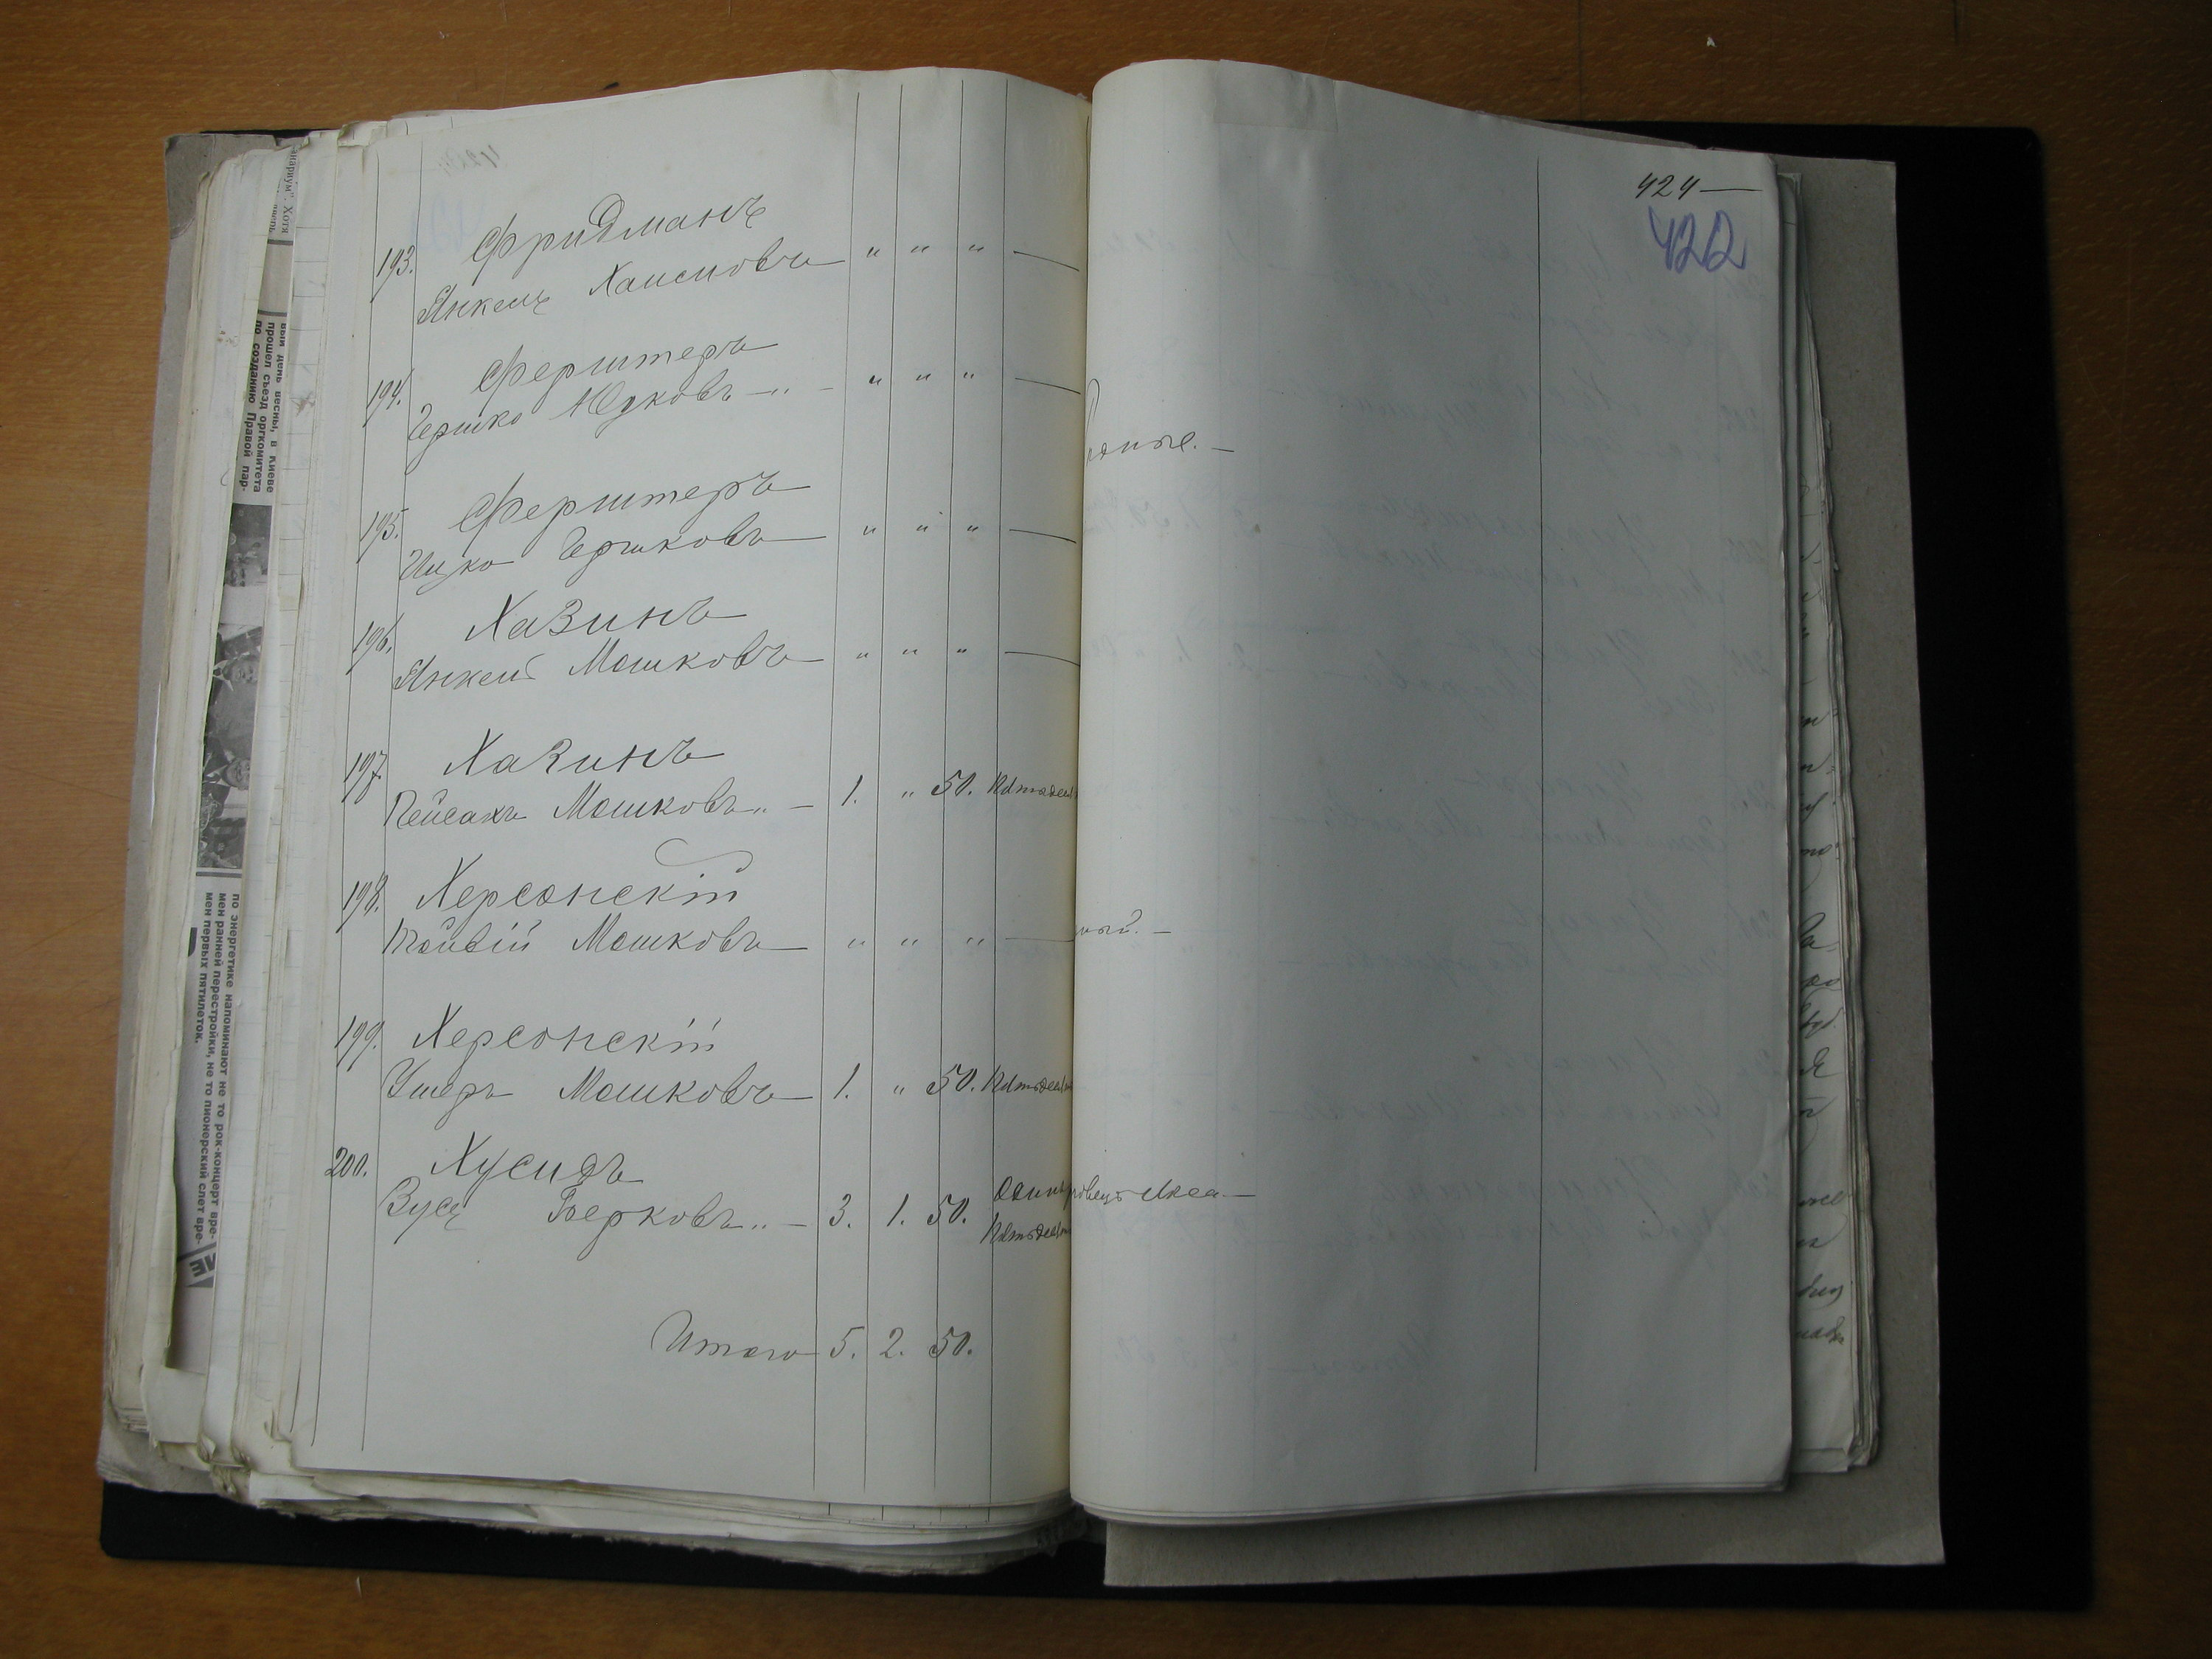 193. Фридманъ
Янкель Хаимовъ — " " " —
194. Ферштеръ
Гершко Юдковъ — " " " —
195. Ферштеръ
Ицко Гершковъ — " " " —
196. Хазинъ
Янкель Мошковъ — " " " —
197. Хазинъ
Пейсахъ Мошковъ " — 1. " 50.
198. Херсонскій
Мошковъ — " " " —
199. Херсонскій
Ушеръ Мошковъ — 1. " 50.
200. Хусидъ
Зусь Берковъ " — 3. 1. 50.
Итого 5. 2. 50.
424 —
422
вый день весны, в Киеве
прошел съезд оргкомитета
по созданию Правой пар-
по энергетике напоминают не то рок-концерт вре-
мен ранней перестройки, не то пионерский слет вре-
мен первых пятилеток.